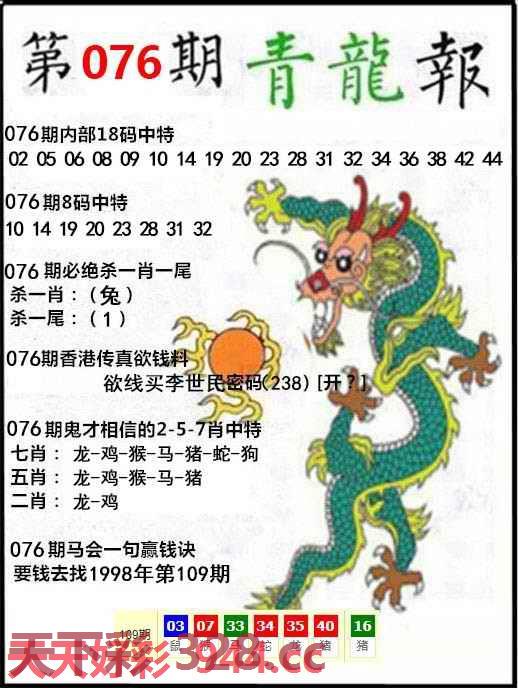 第076期青龍報
076期内部18码中特
02 05 06 08 09 10 14 19 20 23 28 31 32 34 36 38 42 44
076期8码中特
10 14 19 20 23 28 31 32
076期必绝杀一肖一尾
杀一肖：（兔）
杀一尾：（1）
076期香港传真欲钱料
欲线买李世民密码(238) [开？]
076期鬼才相信的2-5-7肖中特
七肖： 龙-鸡-猴-马-猪-蛇-狗
五肖： 龙-鸡-猴-马-猪
二肖： 龙-鸡
076期马会一句赢钱诀
要钱去找1998年第109期
109期 03 07 33 34 35 40 16
鼠 猴 马 蛇 龙 猪 猪